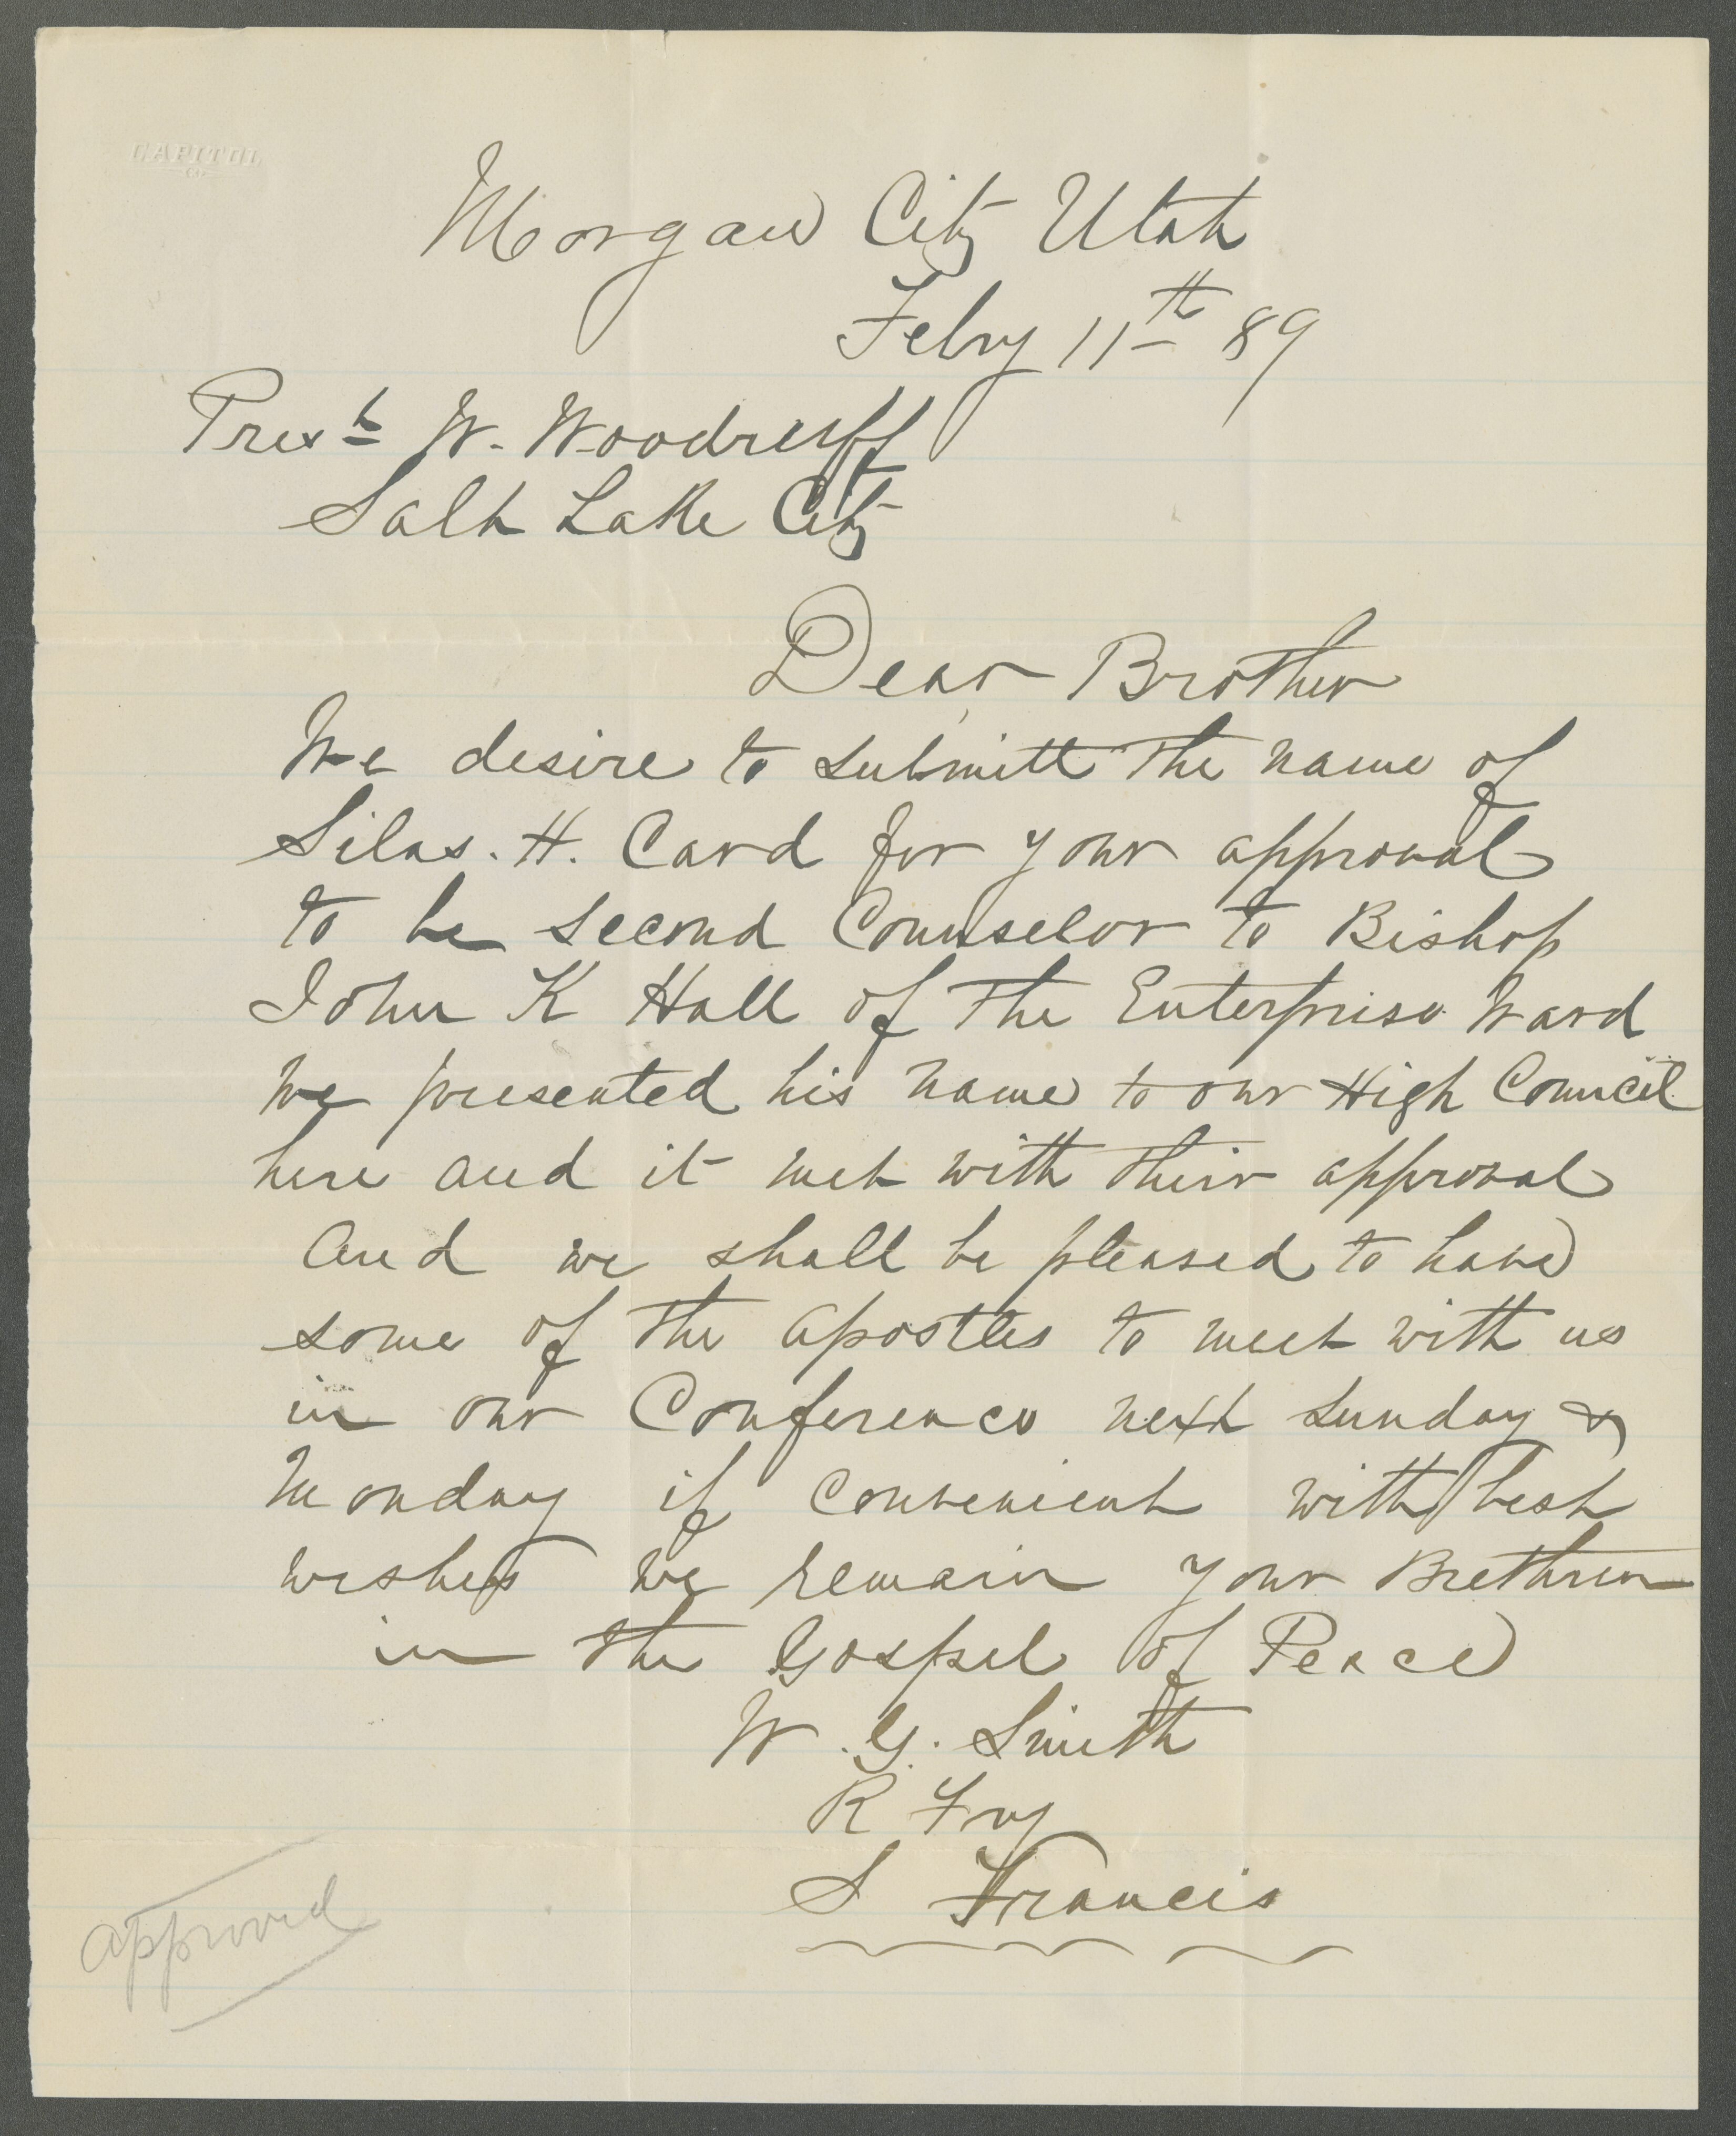 CAPITOL
Morgan City Utah
Febry 11th 89
Prest W. Woodruff
Salt Lake City
Dear Brother
We desire to submitt the name of
Silas. H. Card for your approval
to be second Counselor to Bishop
John K Hall of the Enterprise Ward
we presented his name to our High Council
here and it met with their approval
And we shall be pleased to have
some of the apostles to meet with us
in our Conference next Sunday &
Monday if convenient with best
wishes we remain your Brethren
in the Gospel of Peace
W. G. Smith
R Fry
S Francis
approved